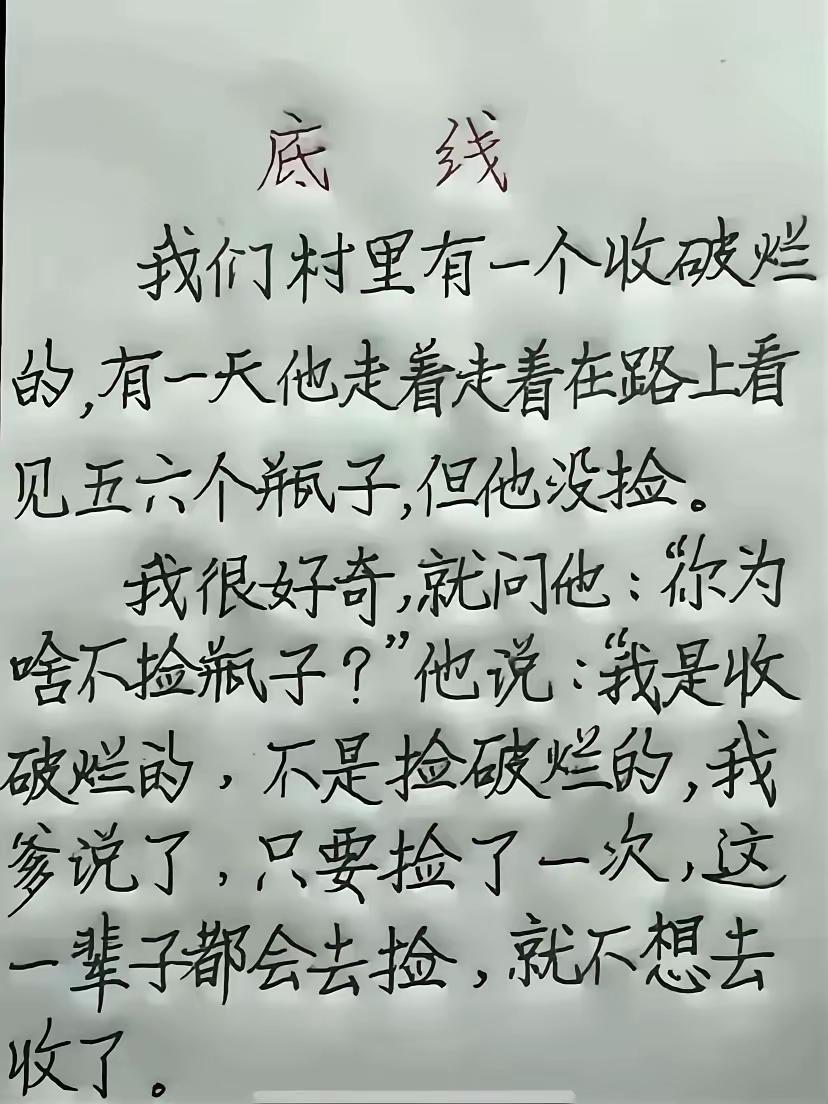 底 线
我们村里有一个收破烂
的,有一天他走着走着在路上看
见五六个瓶子,但他没捡。
我很好奇,就问他:“你为
啥不捡瓶子?”他说:“我是收
破烂的,不是捡破烂的,我
爹说了,只要捡了一次,这
一辈子都会去捡,就不想去
收了。